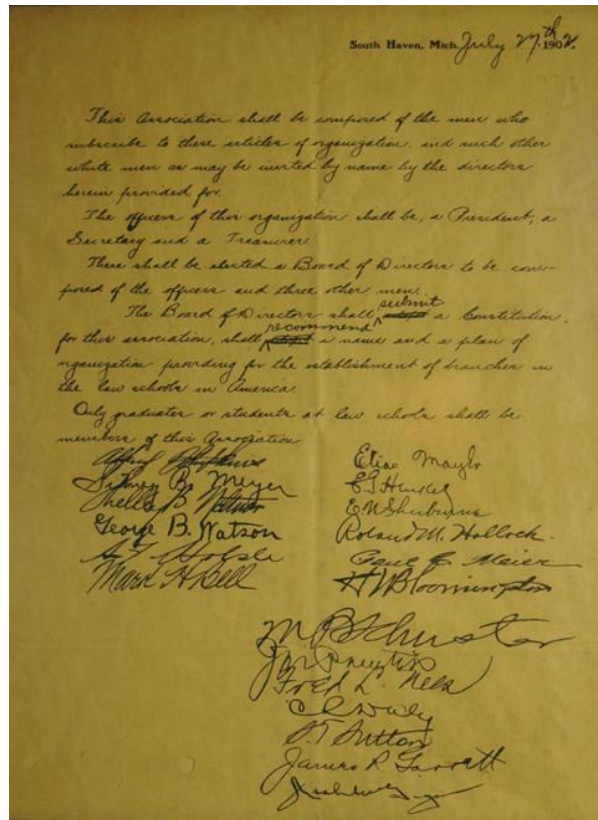 South Haven, Mich. July 27th 1902.
This Association shall be composed of the men who
subscribe to these articles of organization and such other
white men as may be invited by name by the directors
herein provided for.
The officers of this organization shall be, a President, a
Secretary and a Treasurer.
There shall be elected a Board of Directors to be com-
posed of the officers and three other men.
submit
The Board of Directors shall a Constitution
recommend
for this association, shall a name and a plan of
organization providing for the establishment of branches in
the law schools in America.
Only graduates or students at law schools shall be
members of this Association
Sidney B. Meyer
George B. Watson
Mark H Bell
Elias
E.W.
Roland M. Hollock.
Paul E. Meier
H Bloomington
M B
Fred L.
Sutton
James R Garrett